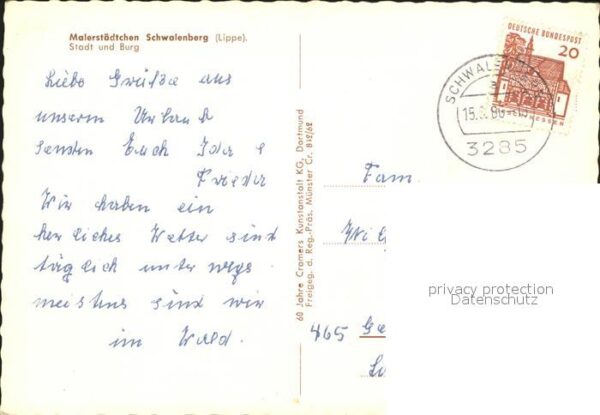 Malerstädtchen Schwalenberg (Lippe).
Stadt und Burg
Liebe Grüße aus
unserm Urlaub
senden Euch Ida &
Frieda
Wir haben ein
herliches Wetter sind
täglich unter wegs
meistens sind wir
im Wald.
60 Jahre Cramers Kunstanstalt KG, Dortmund
Freigeg. d. Reg.-Präs. Münster Cr. 842/62
DEUTSCHE BUNDESPOST
20
3285
Fam.
465
privacy protection
Datenschutz